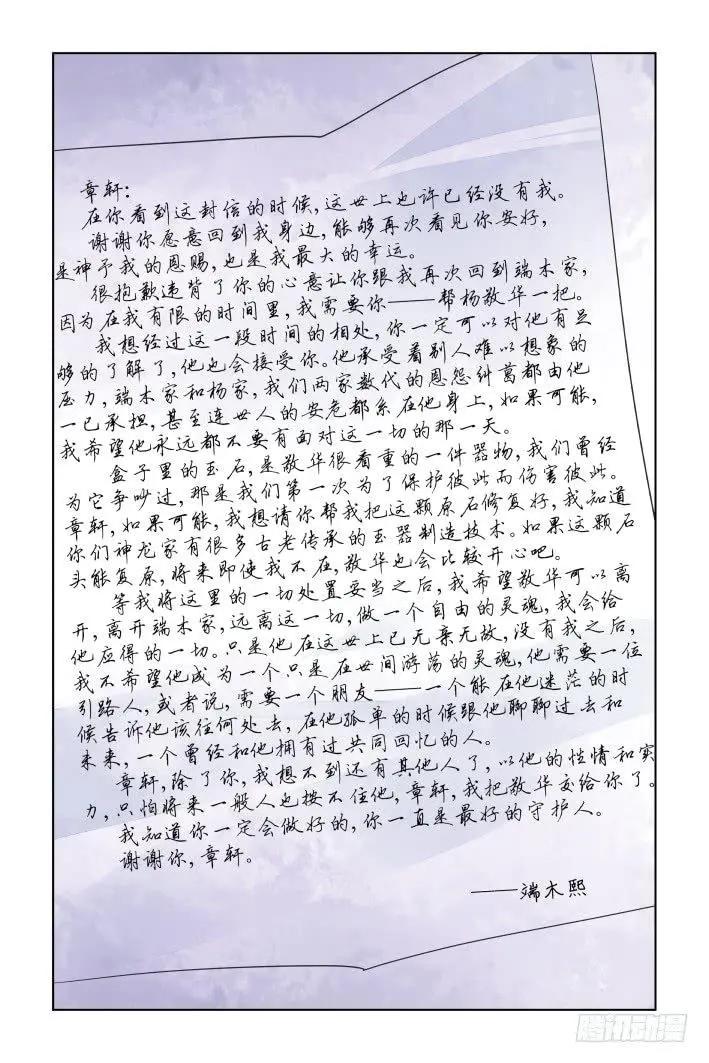 章轩：
在你看到这封信的时候，这世上也许已经没有我。
谢谢你愿意回到我身边，能够再次看见你安好，
是神予我的恩赐，也是我最大的幸运。
很抱歉违背了你的心意让你跟我再次回到端木家，
因为在我有限的时间里，我需要你——帮杨敬华一把。
我想经过这一段时间的相处，你一定可以对他有足
够的了解了，他也会接受你。他承受着别人难以想象的
压力，端木家和杨家，我们两家数代的恩怨纠葛都由他
一己承担，甚至连世人的安危都系在他身上，如果可能，
我希望他永远都不要有面对这一切的那一天。
盒子里的玉石，是敬华很看重的一件器物，我们曾经
为它争吵过，那是我们第一次为了保护彼此而伤害彼此。
章轩，如果可能，我想请你帮我把这颗原石修复好，我知道
你们神龙家有很多古老传承的玉器制造技术。如果这颗石
头能复原，将来即使我不在，敬华也会比较开心吧。
等我将这里的一切处置妥当之后，我希望敬华可以离
开，离开端木家，远离这一切，做一个自由的灵魂，我会给
他应得的一切。只是他在这世上已无亲无故，没有我之后，
我不希望他成为一个只是在世间游荡的灵魂，他需要一位
引路人，或者说，需要一个朋友——一个能在他迷茫的时
候告诉他该往何处去，在他孤单的时候跟他聊聊过去和
未来，一个曾经和他拥有过共同回忆的人。
章轩，除了你，我想不到还有其他人了，以他的性情和实
力，只怕将来一般人也按不住他，章轩，我把敬华交给你了。
我知道你一定会做好的，你一直是最好的守护人。
谢谢你，章轩。
——端木熙
腾讯动漫